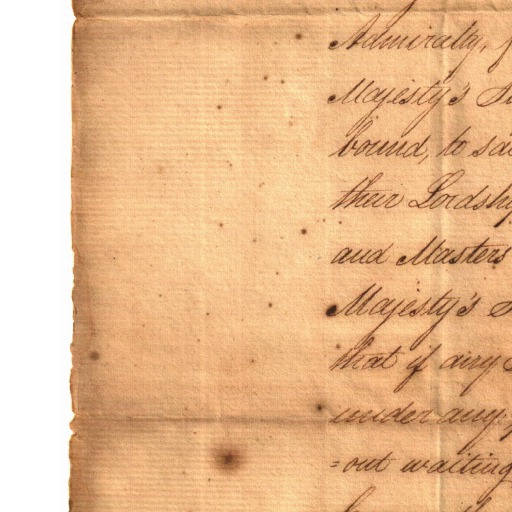 Admiralty,
Majesty's
bound, to
their Lordship
and Masters
Majesty's
that if any
under any
=out waiting